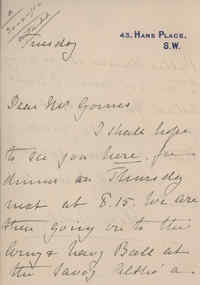 Tuesday
43, HANS PLACE,
S.W.
Dear Mr.
I shall hope
to see you here for
dinner on Thursday
next at 8.15. We are
then going on to the
Army & Navy Ball at
the Savoy